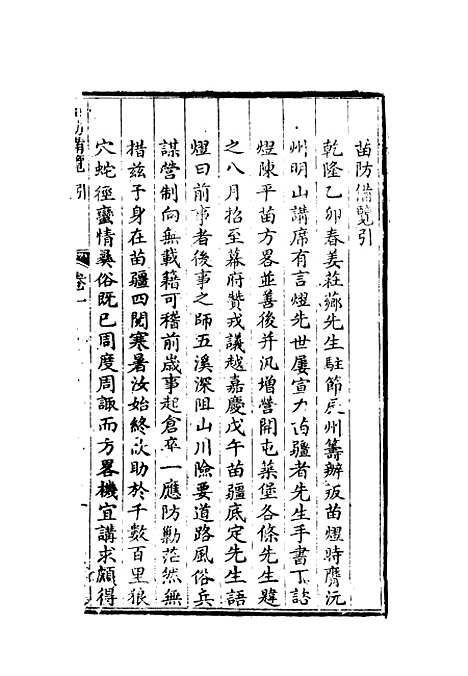 苗防備覽引
乾隆乙卯春姜莊薌先生駐節辰州籌辦叛苗煃時膺沅
州明山講席有言煃先世屢宣力苗疆者先生手書下誌
煃陳平苗方畧並善後并汛增營開屯築堡各條先生韙
之八月招至幕府贊戎議越嘉慶戊午苗疆底定先生語
煃曰前事者後事之師五溪深阻山川險要道路風俗兵
謀營制向無載籍可稽前歲事起倉卒一應防勦茫然無
措兹子身在苗疆四閱寒暑汝始終欣助於千數百里狼
穴蛇徑蠻情彝俗既已周度周諏而方畧機宜講求頗得
防備覽 引 卷一